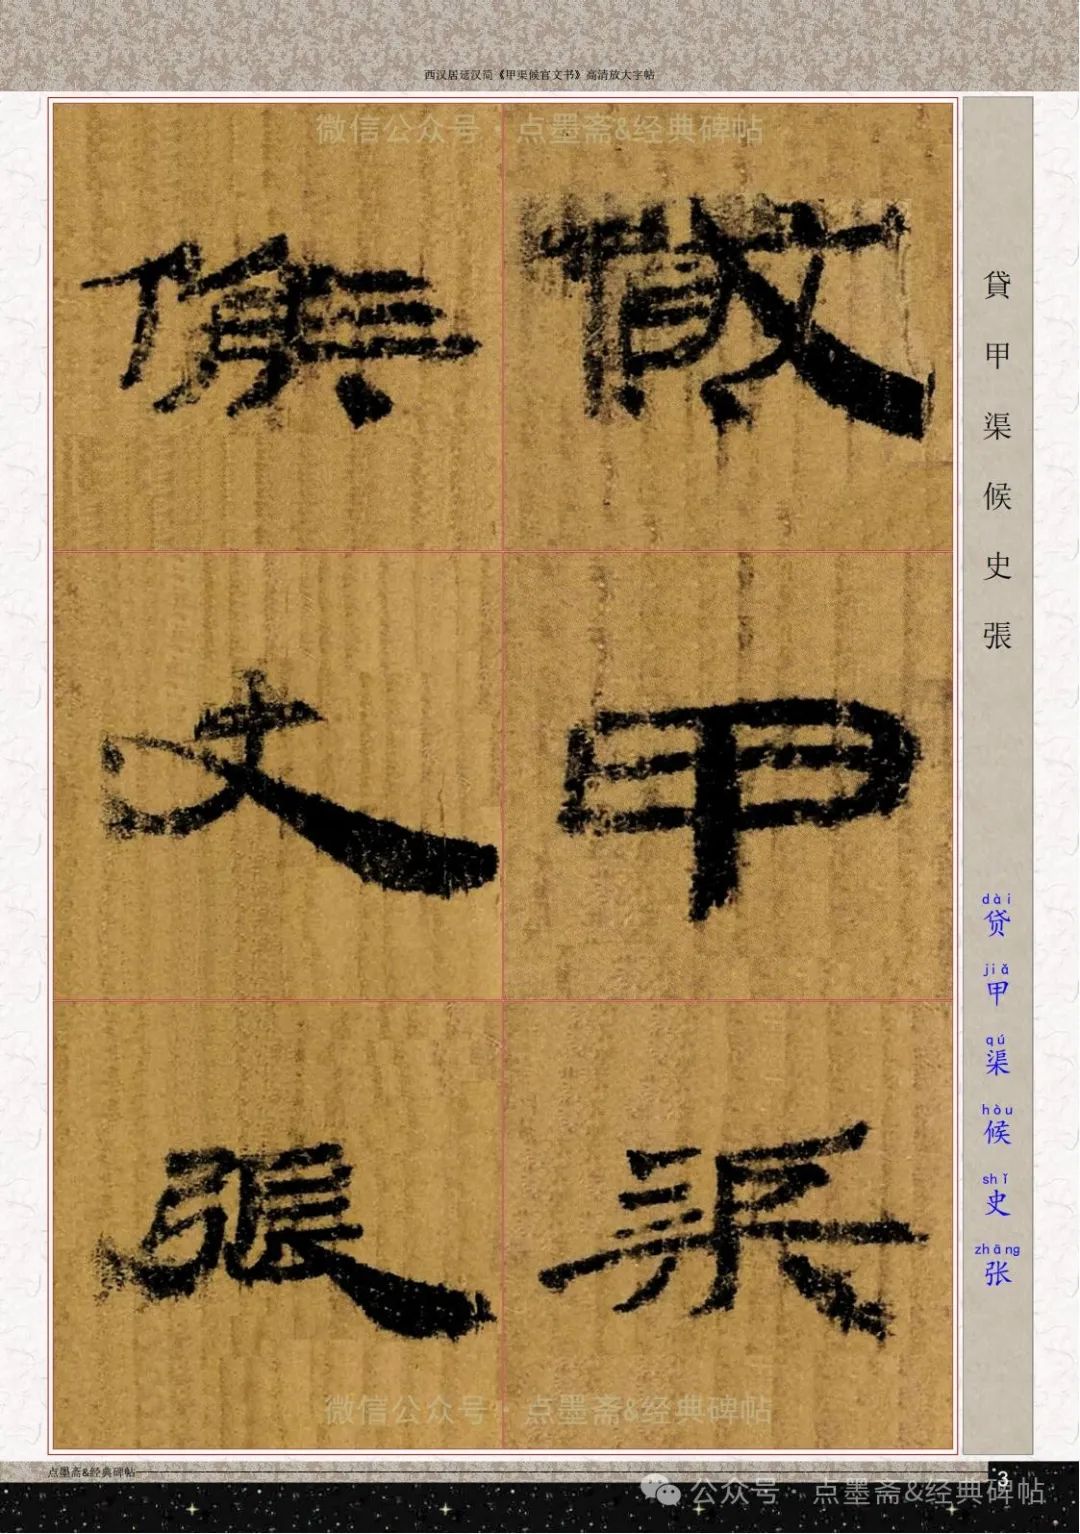 西汉居延汉简《甲渠候官文书》高清放大字帖
微信公众号·点墨斋&经典碑帖
貸
甲
渠
候
史
張
貸甲渠候史張
dài
贷
jiǎ
甲
qú
渠
hòu
候
shǐ
史
zhāng
张
微信公众号·点墨斋&经典碑帖
点墨斋&经典碑帖
3
公众号·点墨斋&经典碑帖